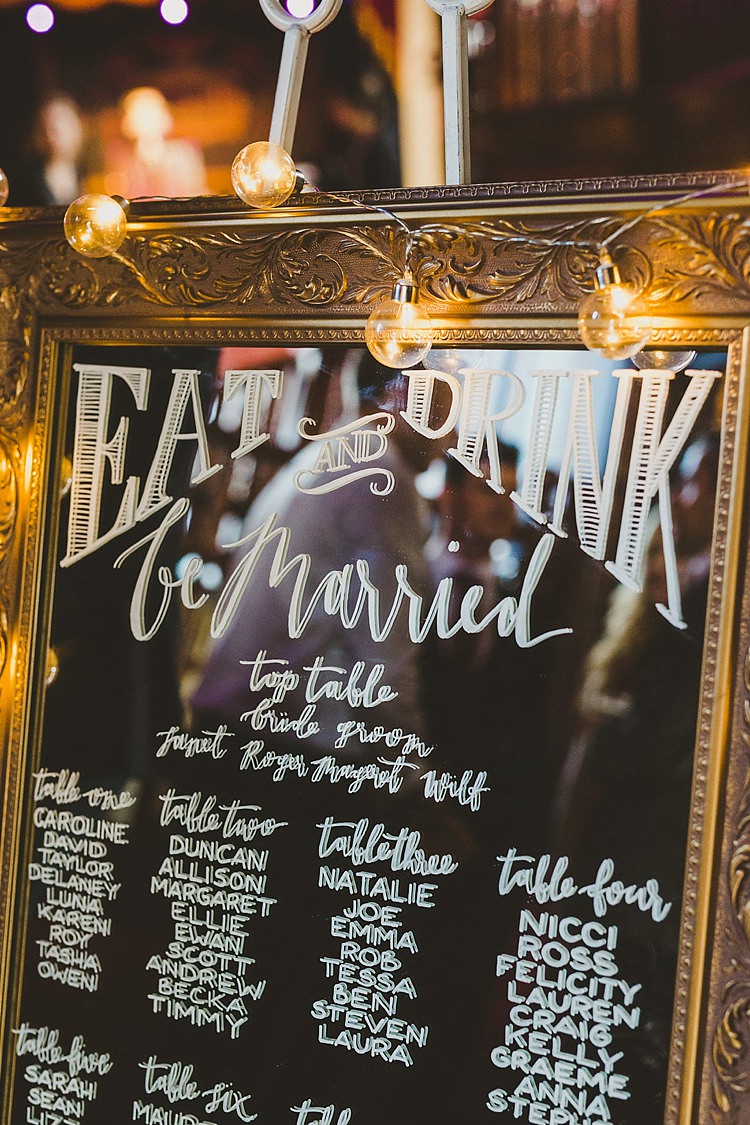 EAT AND DRINK
be Married
top table
bride groom
Janet Roger Margaret Wilf
table one
CAROLINE
DAVID
TAYLOR
DELANEY
LUNA
KAREN
ROY
TASHA
OWEN
table two
DUNCAN
ALLISON
MARGARET
ELLIE
EWAN
SCOTT
ANDREW
BECKA
TIMMY
table three
NATALIE
JOE
EMMA
ROB
TESSA
BEN
STEVEN
LAURA
table four
NICCI
ROSS
FELICITY
LAUREN
CRAIG
KELLY
GRAEME
ANNA
table five
SARAH
SEAN
table six
table